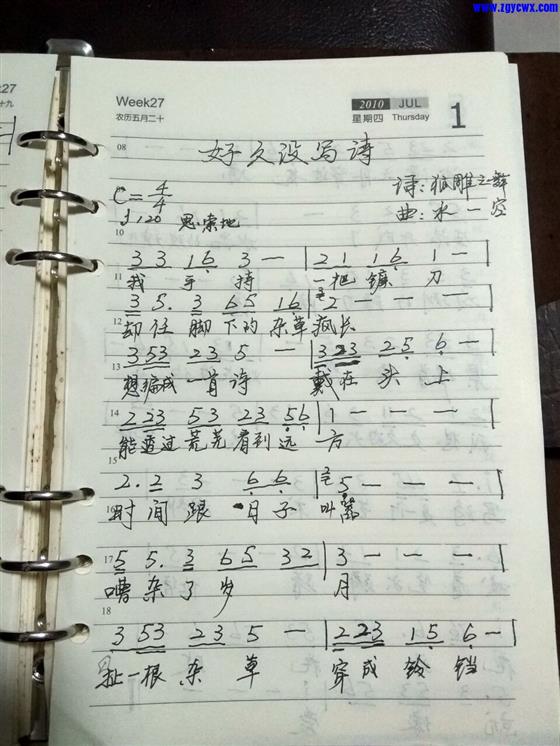 www.zgycwx.com
Week27
农历五月二十
2010 JUL
星期四 Thursday
1
08
好久没写诗
诗:狼雕之舞
C=4/4
曲:水一空
♩120 思索地
10
3 3 1 6 3 — | 2 1 1 6 1 — |
11
我 手 持 一把镰 刀
3 5. 3 6 5 1 6 | 2 — — —
12
却任脚下的杂草疯长
3 53 2 3 5 — | 3 23 2 5 6 — |
13
想编成一首诗 戴在头上
14
2 23 53 23 56 | 1 — — — |
能透过荒芜看到远方
15
2. 2 3 6 6 | 5 — — — |
16
时间跟 月子 叫嚣
17
5 5. 3 65 32 | 3 — — — |
嘈杂了岁 月
18
3 53 23 5 — | 2 23 1 5 6 — |
扯一根杂草 穿成铃铛